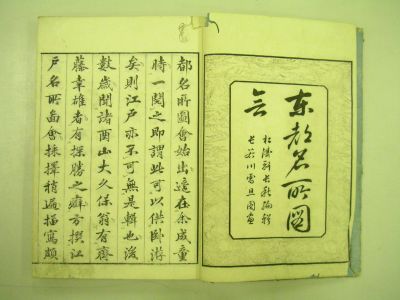 東都名所圖
會
松濤軒長秋編輯
長谷川雪旦圖畫
都名所圖會始出適在余成童
時一閲之即謂此可以供臥游
矣則江戸亦不可無是輯也後
數歲聞諸酉山大久保翁有齋
藤幸雄者有探勝之癖方撰江
戸名所圖會採擇稍遍描寫頗